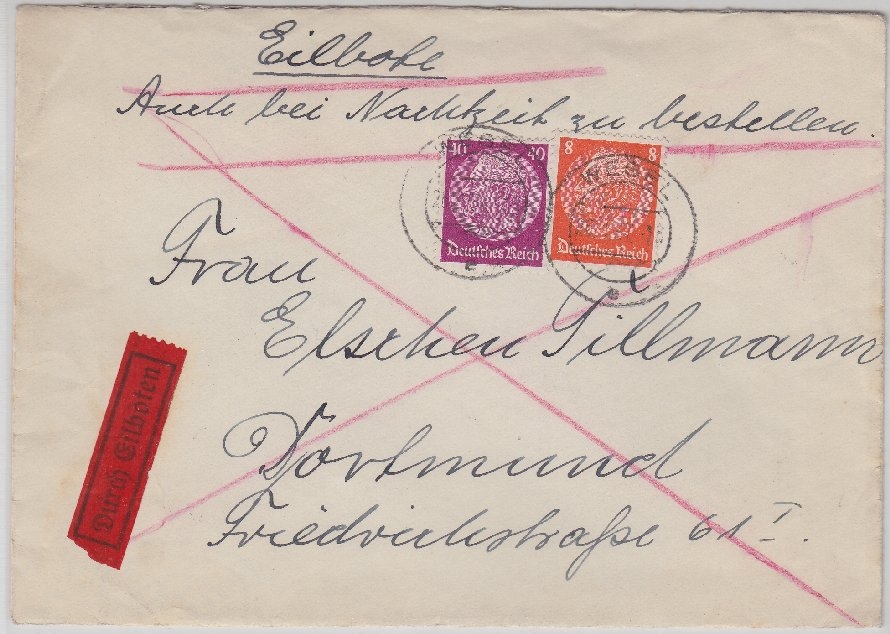 Eilbote
Auch bei Nachtzeit zu bestellen.
40 40
Deutsches Reich
8 8
Deutsches Reich
WESEL
Frau
Elschen Sillmann
Durch Eilboten
Dortmund
Friedrichstraße 61 I.